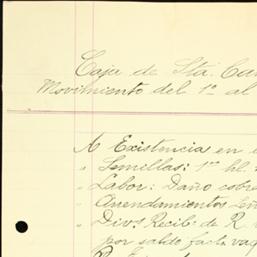 Caja de Sta. Cu
Movimiento del 1º al
A Existencia en
" Semillas: 1 hl.
" Labor: Daño cobra
" Arrendamientos Leñ
" Divs. Recib. de R.
por saldo fact. vaq